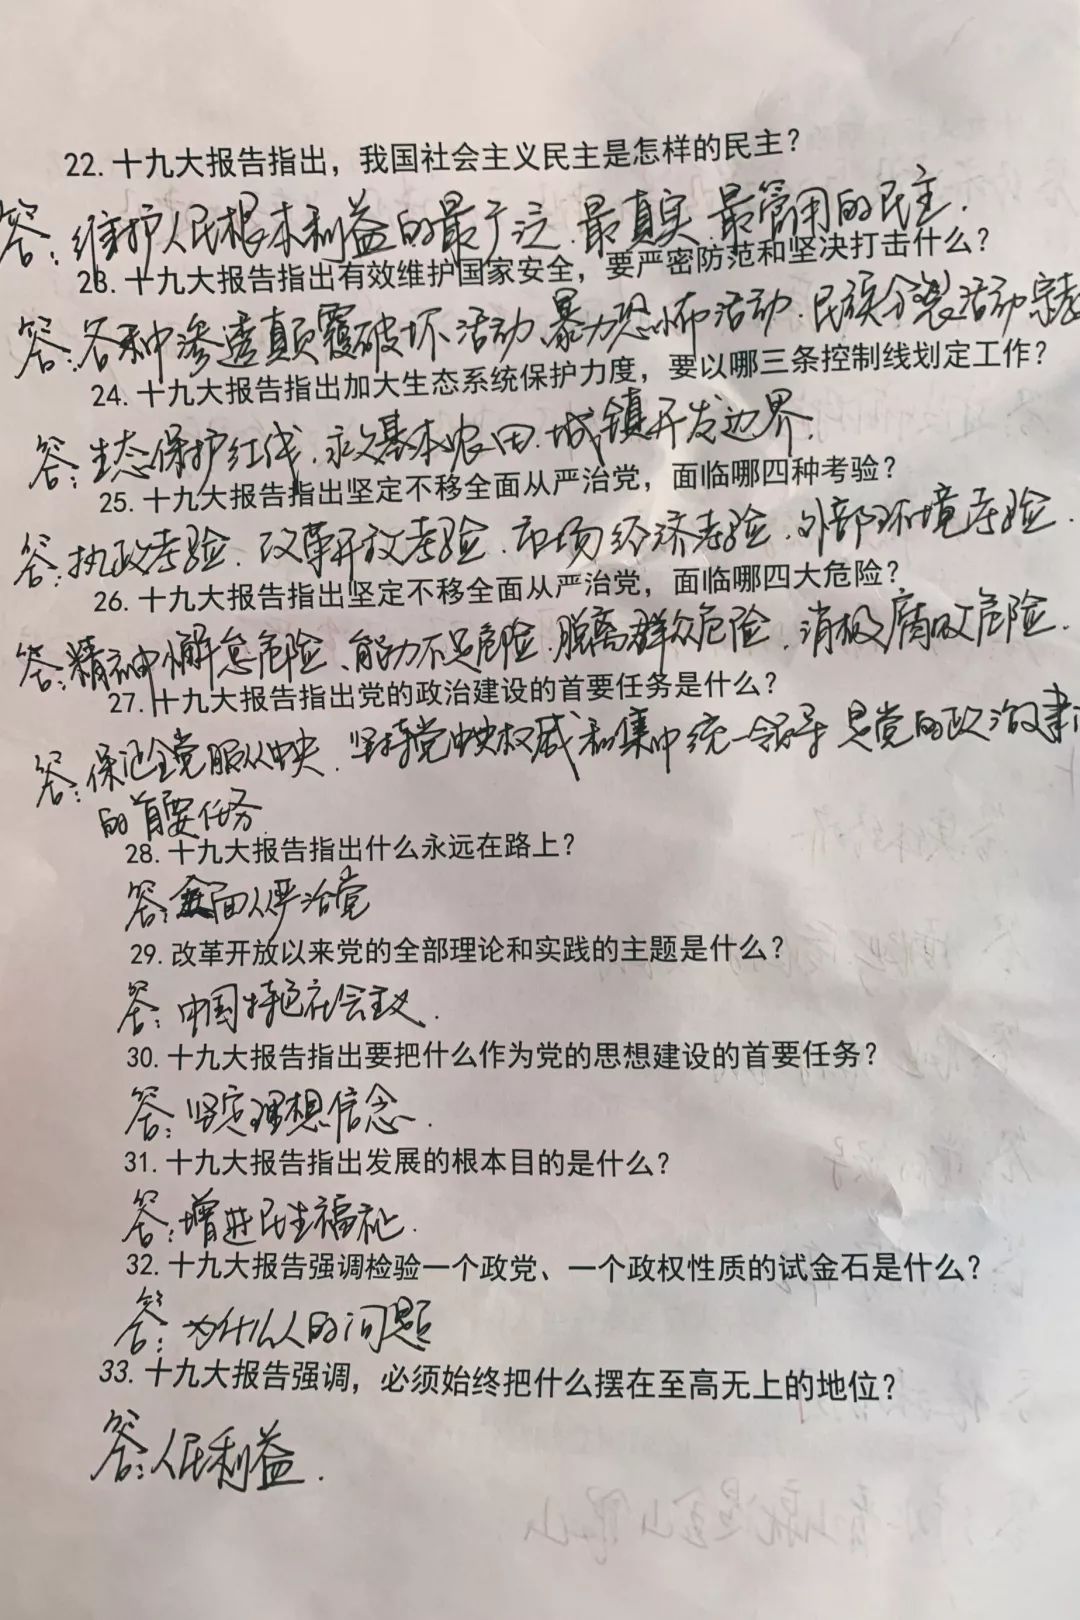 22. 十九大报告指出，我国社会主义民主是怎样的民主？
答：维护人民根本利益的最广泛、最真实、最管用的民主.
23. 十九大报告指出有效维护国家安全，要严密防范和坚决打击什么？
答：各种渗透颠覆破坏活动、暴力恐怖活动、民族分裂活动宗教
24. 十九大报告指出加大生态系统保护力度，要以哪三条控制线划定工作？
答：生态保护红线、永久基本农田、城镇开发边界.
25. 十九大报告指出坚定不移全面从严治党，面临哪四种考验？
答：执政考验、改革开放考验、市场经济考验、外部环境考验.
26. 十九大报告指出坚定不移全面从严治党，面临哪四大危险？
答：精神懈怠危险、能力不足危险、脱离群众危险、消极腐败危险.
27. 十九大报告指出党的政治建设的首要任务是什么？
答：保证全党服从中央、坚持党中央权威和集中统一领导是党的政治建设
的首要任务
28. 十九大报告指出什么永远在路上？
答：全面从严治党
29. 改革开放以来党的全部理论和实践的主题是什么？
答：中国特色社会主义.
30. 十九大报告指出要把什么作为党的思想建设的首要任务？
答：坚定理想信念.
31. 十九大报告指出发展的根本目的是什么？
答：增进民生福祉.
32. 十九大报告强调检验一个政党、一个政权性质的试金石是什么？
答：为什么人的问题
33. 十九大报告强调，必须始终把什么摆在至高无上的地位？
答：人民利益.